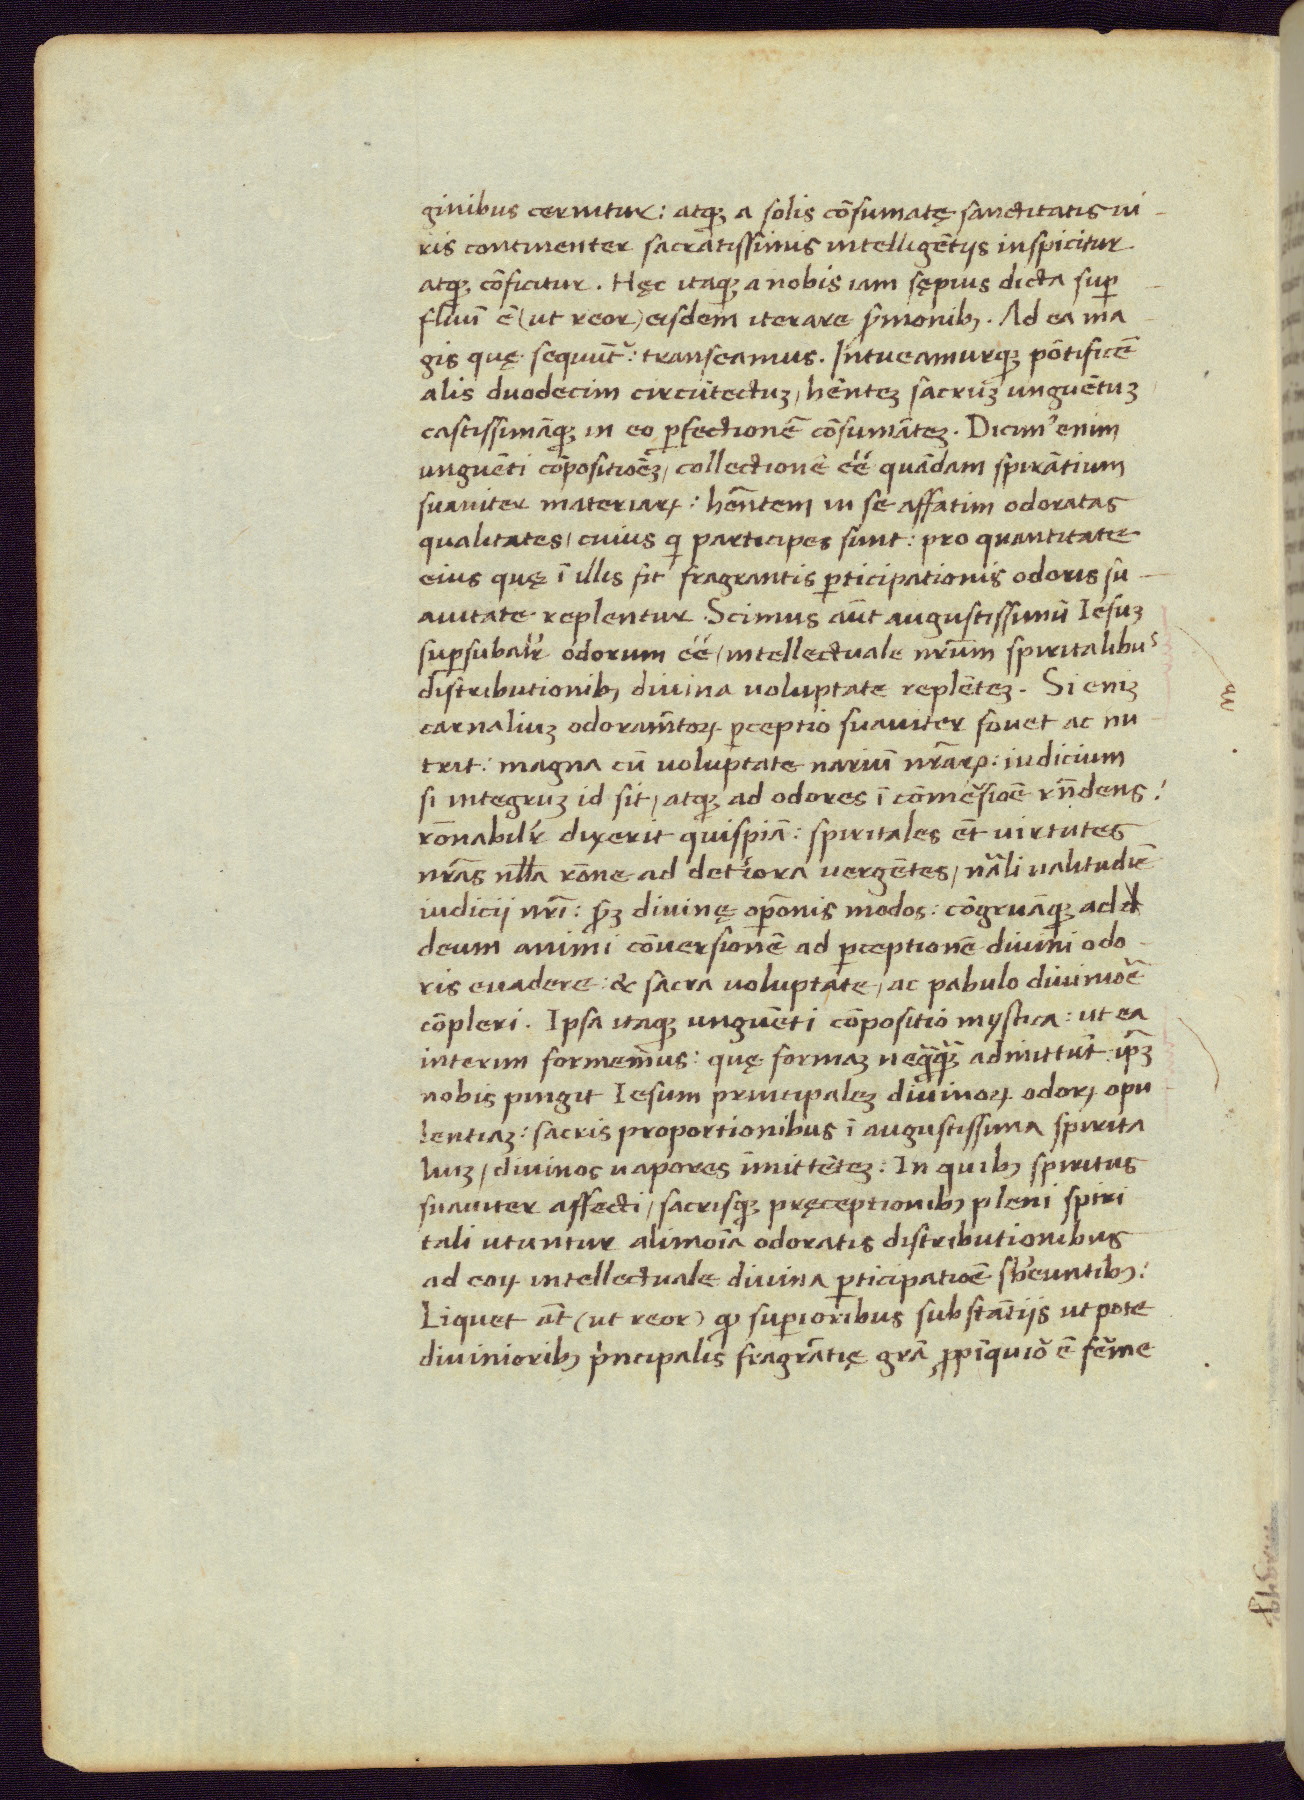 ginibus cernitur: atqꝫ a solis cōsumatę sanctitatis ui-
ris continenter sacratissimis intelligētijs inspicitur
atqꝫ cōficitur. Hęc itaqꝫ a nobis iam sępius dicta suꝑ-
fluū ē (ut reor) eisdem iterare s̃monibꝫ. Ad ea ma-
gis quę sequunt᷑: transeamus. Intueamurqꝫ pōtificē
alis duodecim circūtectuꝫ, hēnteꝫ sacruꝫ unguētuꝫ
castissimāqꝫ in eo ꝑfectionē cōsumāteꝫ. Dicimꝰ enim
unguēti cōpositiōeꝫ, collectionē eē quādam spirātium
suauiter materiaꝝ: hēntem in se affatim odoratas
qualitates, cuius qi participes sunt: pro quantitate
eius quę ī illis sit fragrantis ꝑticipationis odoris su-
auitate replentur. Scimus aūt augustissimū Iesuꝫ
suꝑsubalr̄ odorum eē, intellectuale nr̄um spiritalibus
distributionibꝫ diuina uoluptate replēteꝫ. Si eniꝫ
carnaliuꝫ odoram̄toꝝ ꝑceptio suauiter fouet ac nu-
trit: magna cū uoluptate nariū nr̄aꝝ: iudicium
si integruꝫ id sit, atqꝫ ad odores ī cōmēsioē rn̄dens:
rōnabilr̄ dixerit quispiā: spiritales ēt uirtutes
nr̄as nlla rōne ad deteriora uergētes, nāli ualitudiē
iudicij nr̄i: ꝓꝫ diuinę oꝑonis modos: cōgruāqꝫ ad
deum animi cōuersionē ad ꝑceptionē diuini odo-
ris euadere: & sacra uoluptate, ac pabulo diuinioē
cōpleri. Ipsa itaqꝫ unguēti cōpositio mystica: ut ea
interim formemus: quę formaꝫ neqq̄qꝫ admittūt: ip̄ꝫ
nobis pingit Iesum principaleꝫ diuinoꝝ odoꝝ opu-
lentiaꝫ: sacris proportionibus ī augustissima spirita
liuꝫ, diuinos uapores īmittēteꝫ: In quibꝫ spiritus
suauiter affecti, sacrisqꝫ pręceptionibꝫ pleni spiri
tali utuntur alimoīa odoratis distributionibus
ad eoꝝ intellectuale diuina ꝑticipatiōe sb̄euntibꝫ:
Liquet aūt (ut reor) qd suꝑioribus substātijs ut pote
diuinioribꝫ pīncipalis fragrātię grā ꝓpīquiō ē fer̄me